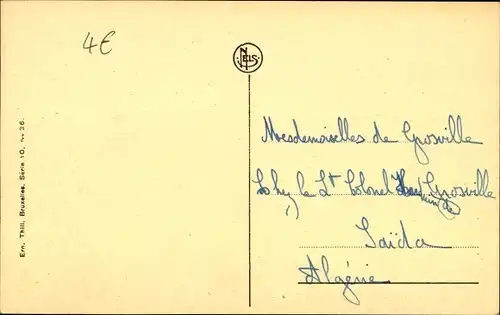 4€
NELS
Ern. Thill, Bruxelles. Série 10, No 26.
Mesdemoiselles de Grosville
Chez le Lt Colonel de Grosville
Saïda
Algérie